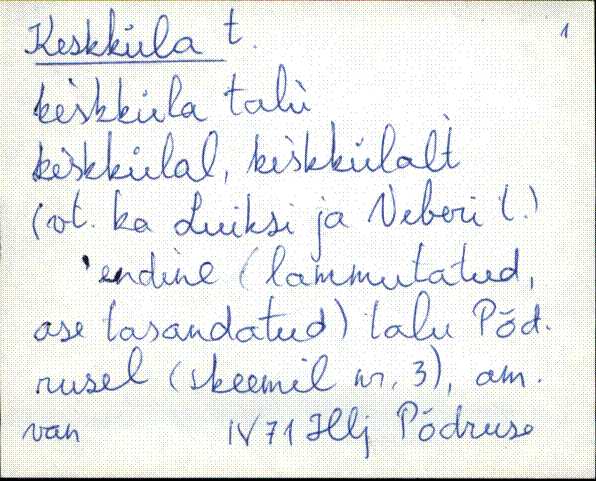 Keskküla t. 1
kèskküla talù
kèskkülal, kèskkülalt̀
(vt. ka Luiksi ja Neberi t.)
'endine (lammutatud,
ase tasandatud) talu Põd.
rusel (skeemil nr. 3), am.
van IV 71 Hlj Põdruse